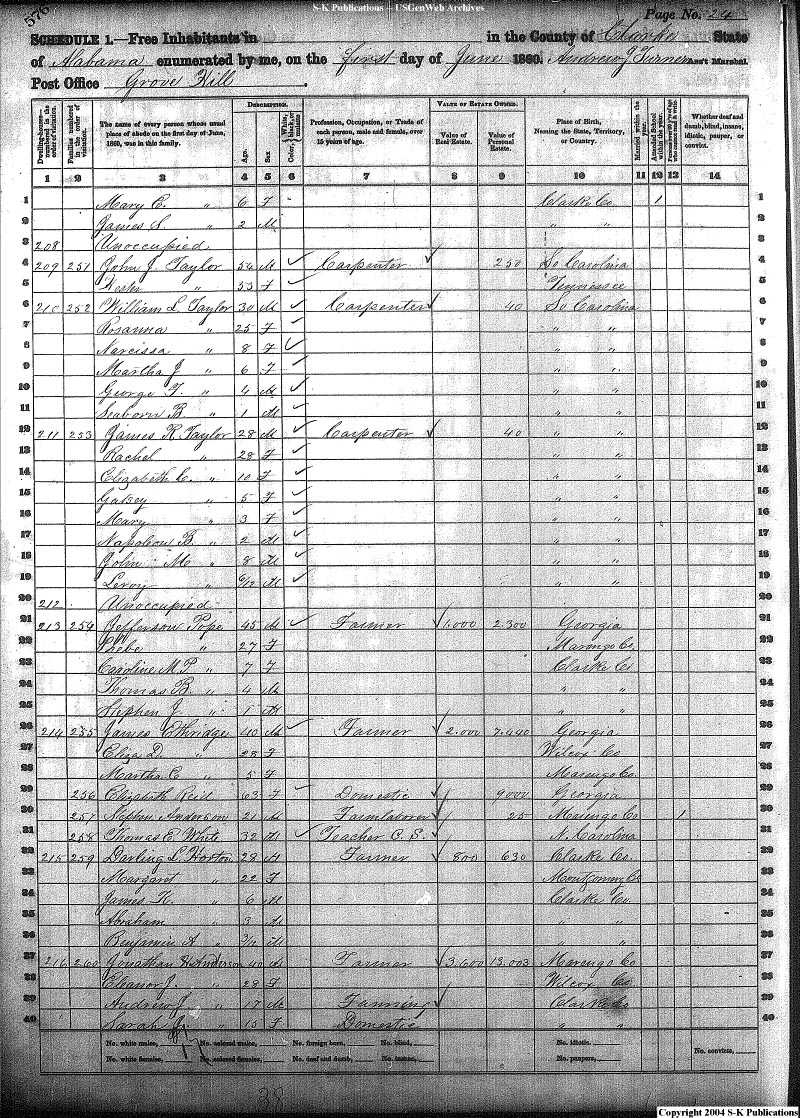 S-K Publications - USGenWeb Archives
576
Page No. 24
SCHEDULE 1.—Free Inhabitants in in the County of Clarke State
of Alabama enumerated by me, on the first day of June 1860. Andrew J Turner Ass't Marshal.
Post Office Grove Hill.
Dwelling-houses numbered in the order of visitation.
Families numbered in the order of visitation.
The name of every person whose usual place of abode on the first day of June, 1860, was in this family.
DESCRIPTION.
Age.
Sex
Color, White, black, or mulatto
Profession, Occupation, or Trade of each person, male and female, over 15 years of age.
VALUE OF ESTATE OWNED.
Value of Real Estate.
Value of Personal Estate.
Place of Birth, Naming the State, Territory, or Country.
Married within the year.
Attended School within the year.
Whether deaf and dumb, blind, insane, idiotic, pauper, or convict.
1 2 3 4 5 6 7 8 9 10 11 12 13 14
1 Mary C. " 6 F Clarke Co 1 1
2 James S. " 2 M " " 2
3 208 Unoccupied 3
4 209 251 John J. Taylor 54 M ✓ Carpenter ✓ 250 So Carolina 4
5 " 53 F ✓ Tennessee 5
6 210 252 William L Taylor 30 M ✓ Carpenter ✓ 40 So Carolina 6
7 Rosanna " 25 F ✓ " " 7
8 Narcissa " 8 F ✓ " " 8
9 Martha J " 6 F ✓ " " 9
10 George T. " 4 M ✓ " " 10
11 Seaborn B " 1 M ✓ " " 11
12 211 253 James R Taylor 28 M ✓ Carpenter ✓ 40 " " 12
13 Rachel " 28 F ✓ " " 13
14 Elizabeth C. " 10 F ✓ " " 14
15 " 5 F ✓ " " 15
16 Mary " 3 F ✓ " " 16
17 Napoleon B. " 2 M ✓ " " 17
18 John M " 8 M ✓ " " 18
19 Leroy " 6/12 M ✓ " " 19
20 212 Unoccupied 20
21 213 254 Jefferson Pope 45 M ✓ Farmer ✓ 1.000 2.300 Georgia 21
22 Phebe " 27 F Marengo Co 22
23 Caroline M. P. " 7 F Clarke Co 23
24 Thomas B. " 4 M " " 24
25 Stephen J. " 1 M " " 25
26 214 255 James Ethridge 40 M ✓ Farmer ✓ 2.000 7.440 Georgia 26
27 Eliza D. " 28 F Wilcox Co 27
28 Martha C " 5 F Marengo Co. 28
29 256 Elizabeth Reid 63 F ✓ Domestic ✓ 9000 Georgia 29
30 257 Anderson 21 M Farmlaborer ✓ 25 Marengo Co 1 30
31 258 Thomas E. White 32 M ✓ Teacher C. S. ✓ N. Carolina 31
32 215 259 Darling L Hoston 28 M Farmer ✓ 800 630 Clarke Co. 32
33 Margaret " 22 F Montgomry Co 33
34 James K. " 6 M Clarke Co 34
35 Abraham " 3 M " " 35
36 Benjamin A " 3/12 M " " 36
37 216 260 Jonathan H Anderson 40 M Farmer ✓ 3.600 13.003 Marengo Co 37
38 Eleanor J. " 28 F Wilcox Co 38
39 Andrew J " 17 M Farming ✓ Clarke Co 39
40 Sarah J. " 15 F Domestic " " 40
No. white males, No. colored males, No. foreign born, No. blind, No. idiotic,
No. white females, No. colored females, No. deaf and dumb, No. insane, No. paupers, No. convicts,
38
Copyright 2004 S-K Publications